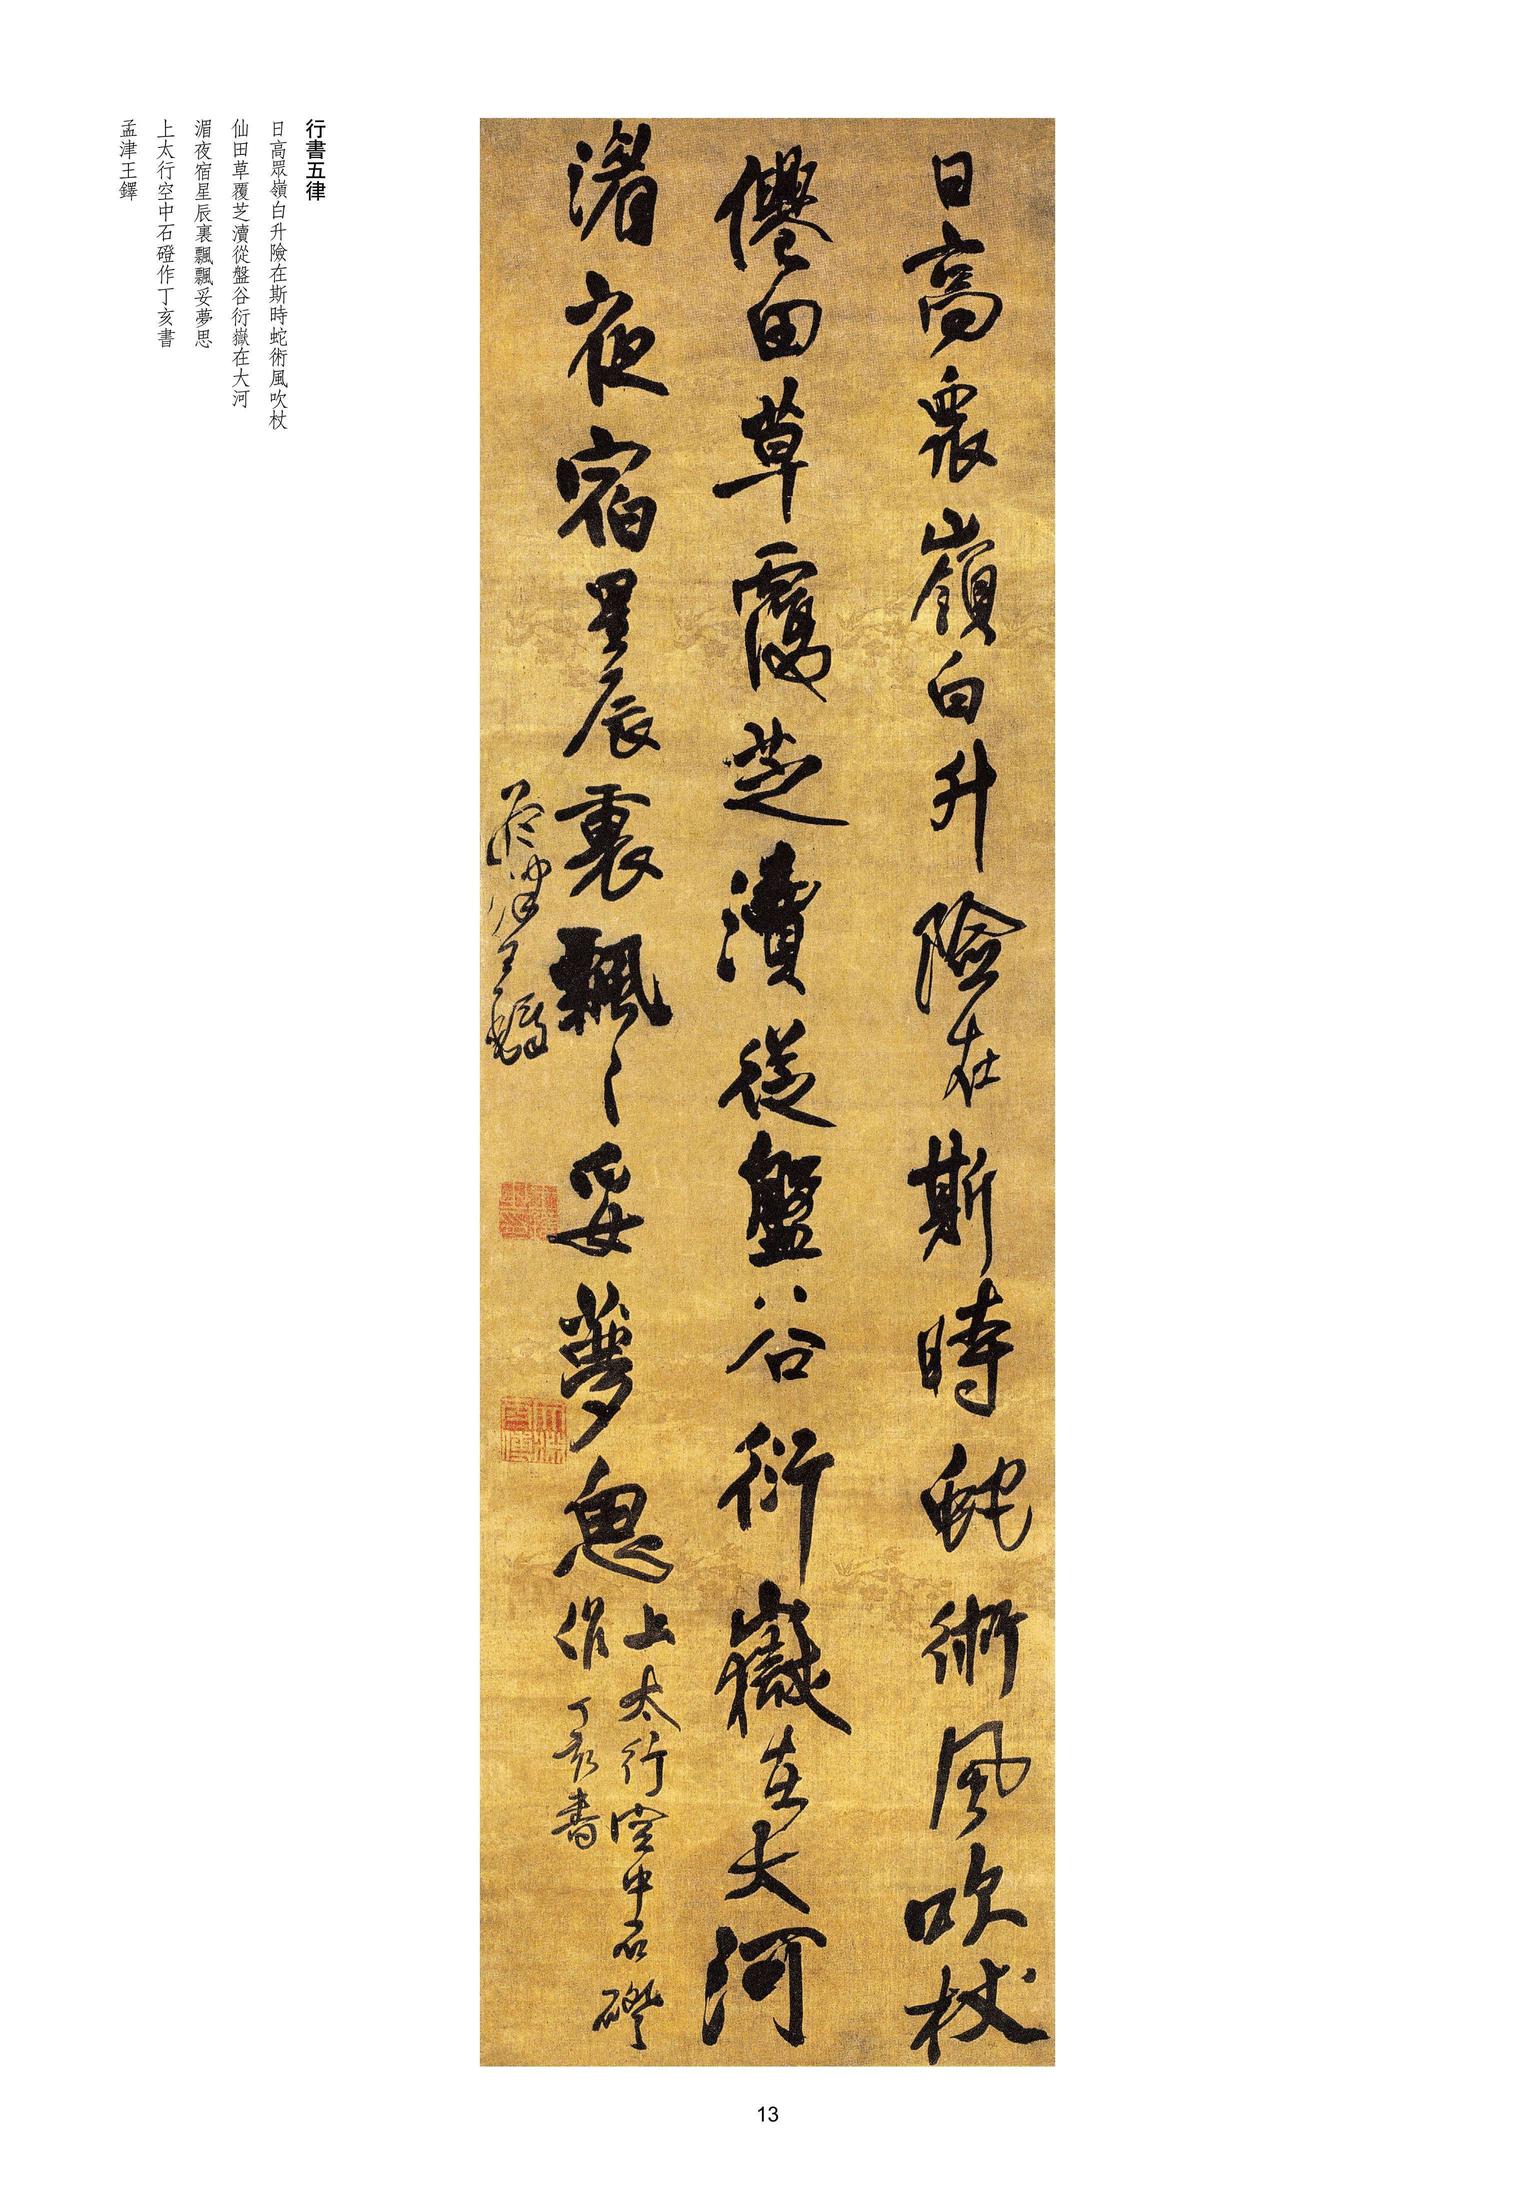 行書五律
日高眾嶺白升險在斯時蛇術風吹杖
仙田草覆芝瀆從盤谷衍嶽在大河
湄夜宿星辰裏飄飄妥夢思
上太行空中石磴作丁亥書
孟津王鐸
日高眾嶺白升險在斯時蛇術風吹杖
僊田草覆芝瀆從盤谷衍嶽在大河
湄夜宿星辰裏飄〻妥夢思
上太行空中石磴
作丁亥書
孟津王鐸
13